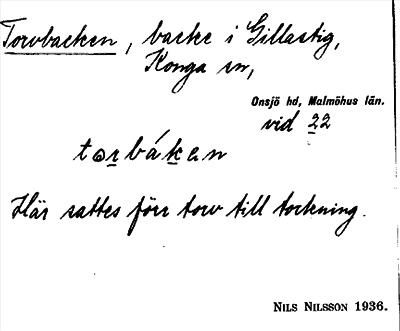 Torvbacken, backe i Gillastig,
Konga sn,
Onsjö hd, Malmöhus län.
vid 22
torbáken
Här sattes förr torv till torkning.
NILS NILSSON 1936.